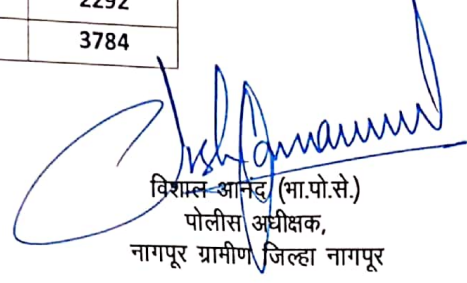 2292
3784
विशाल आनंद (भा.पो.से.)
पोलीस अधीक्षक,
नागपूर ग्रामीण जिल्हा नागपूर